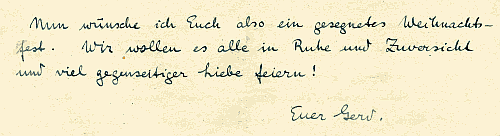 Nun wünsche ich Euch also ein gesegnetes Weihnachts-
fest. Wir wollen es alle in Ruhe und Zuversicht
und viel gegenseitiger Liebe feiern!
Euer Gerd.